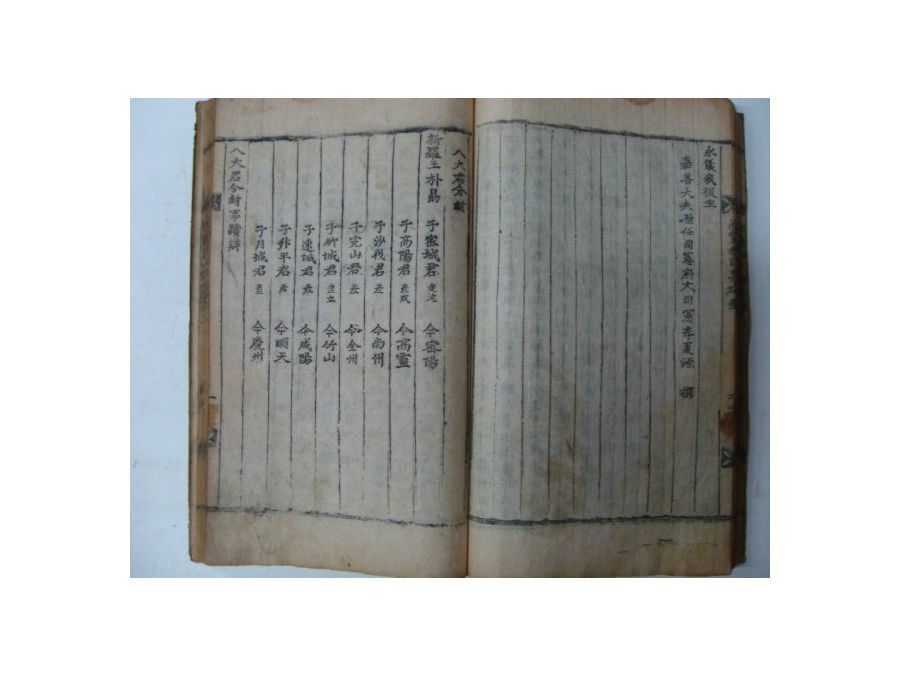 永儀歲後生
嘉善大夫原任司憲府大司憲李夏源 撰
八大君分封
新羅王朴昌 子密城君 今密陽
子高陽君 今高靈
子沙伐君 今尚州
子完山君 今全州
子竹城君 今竹山
子速諴君 今咸陽
子平君 今順天
子月城君 今慶州
八大君分封事蹟辨